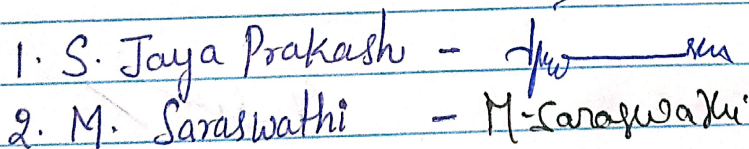 1. S. Jaya Prakash -
2. M. Saraswathi - M. Saraswathi